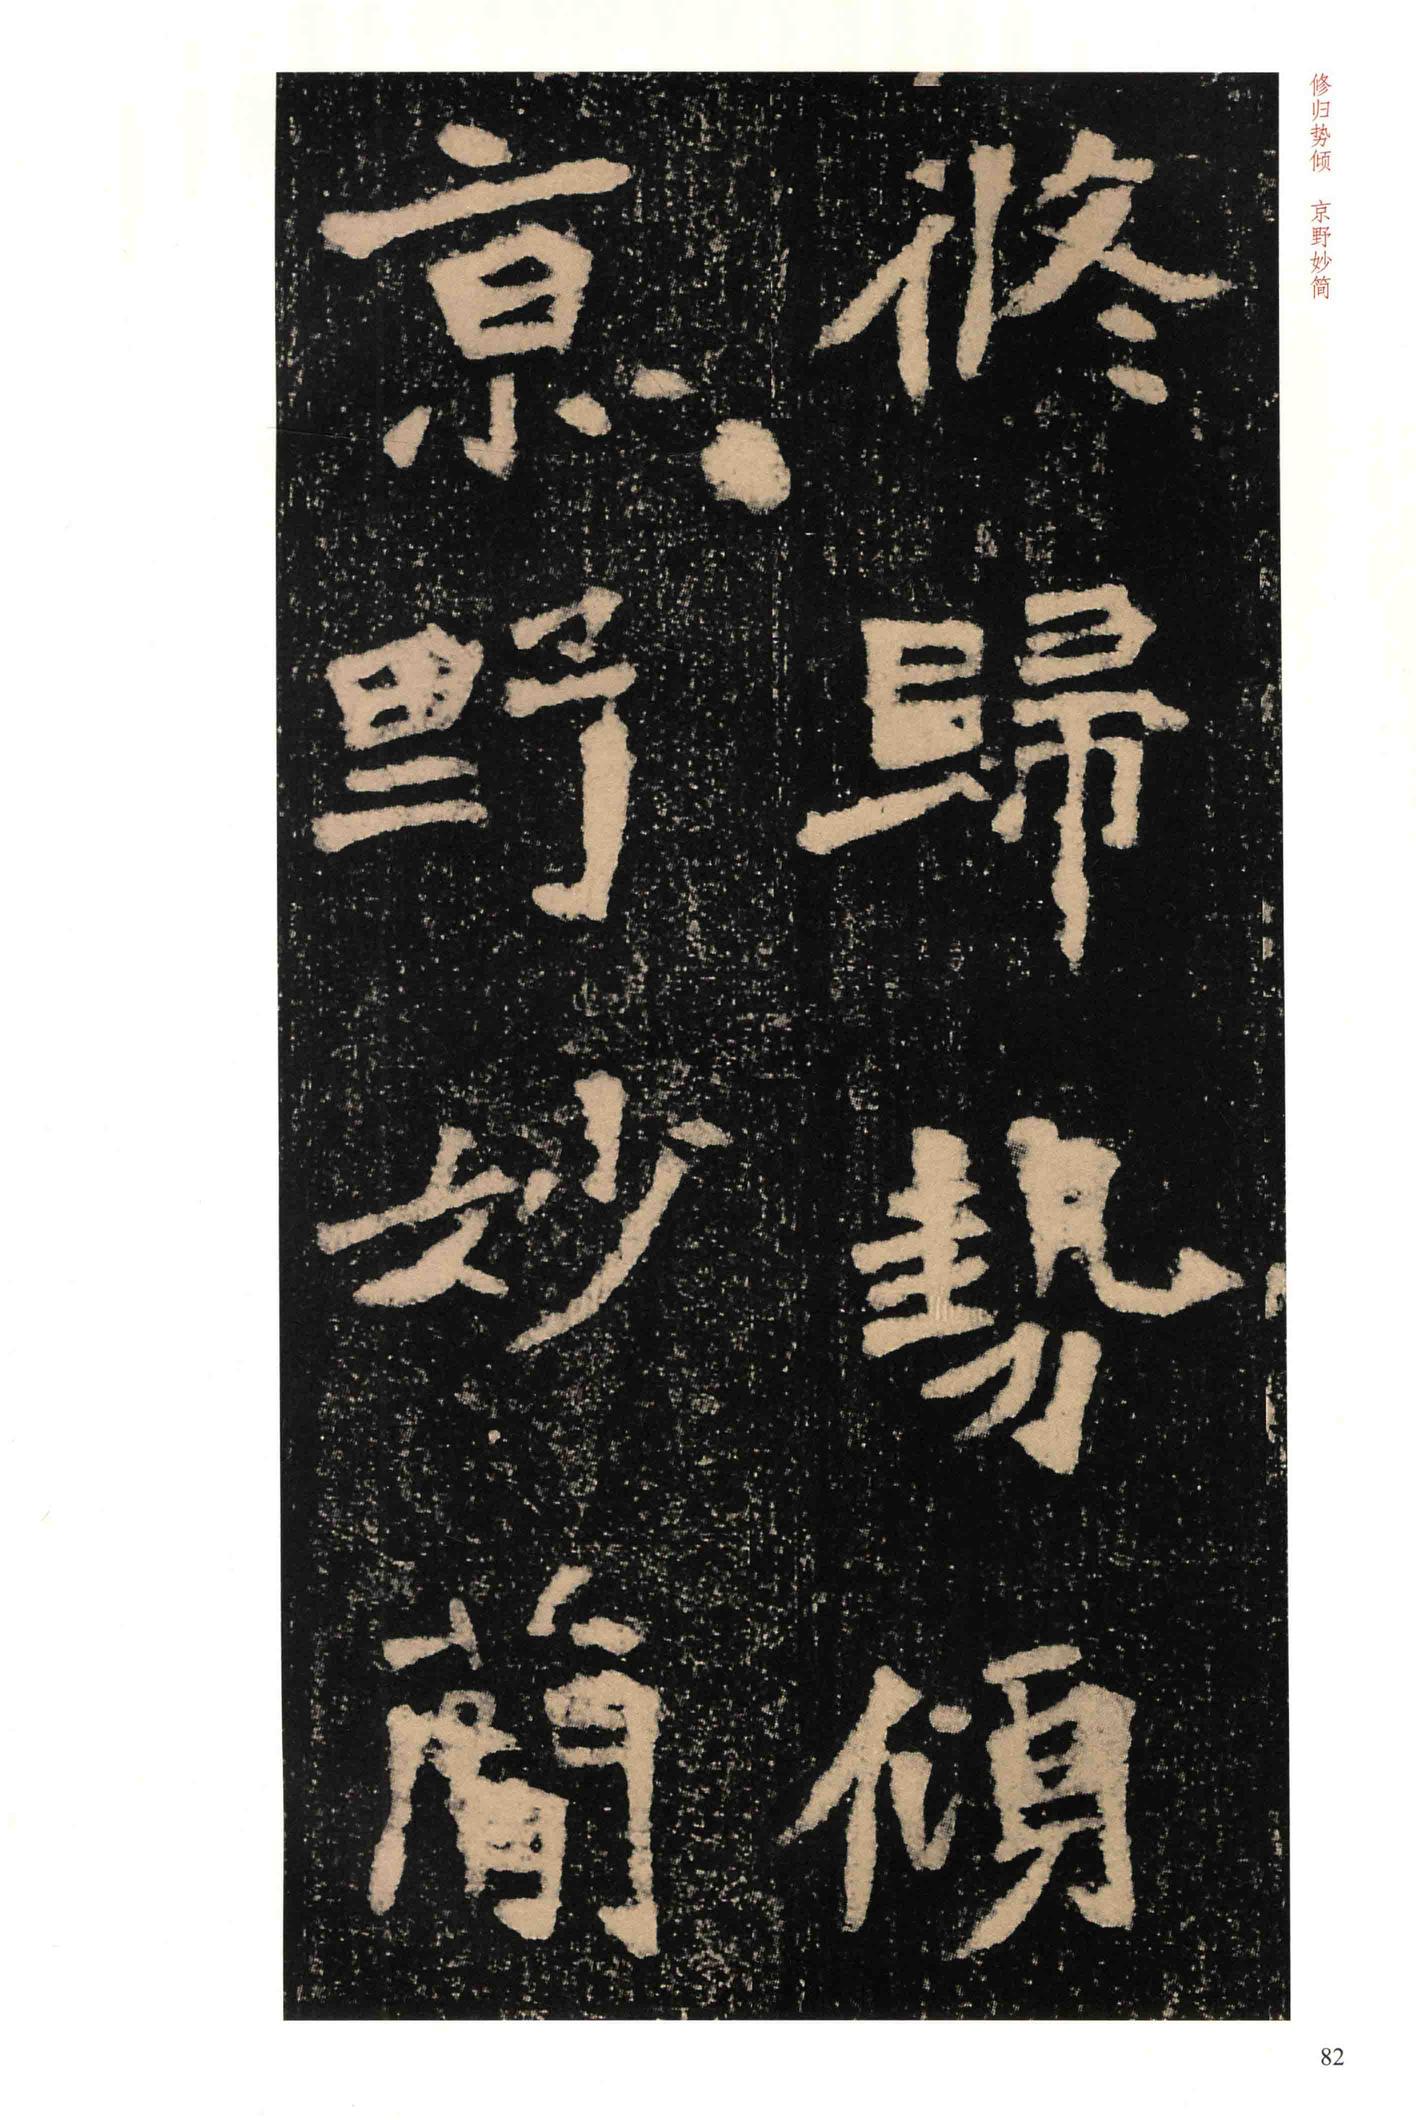 修归势倾　京野妙简
修歸勢傾
京野妙簡
82